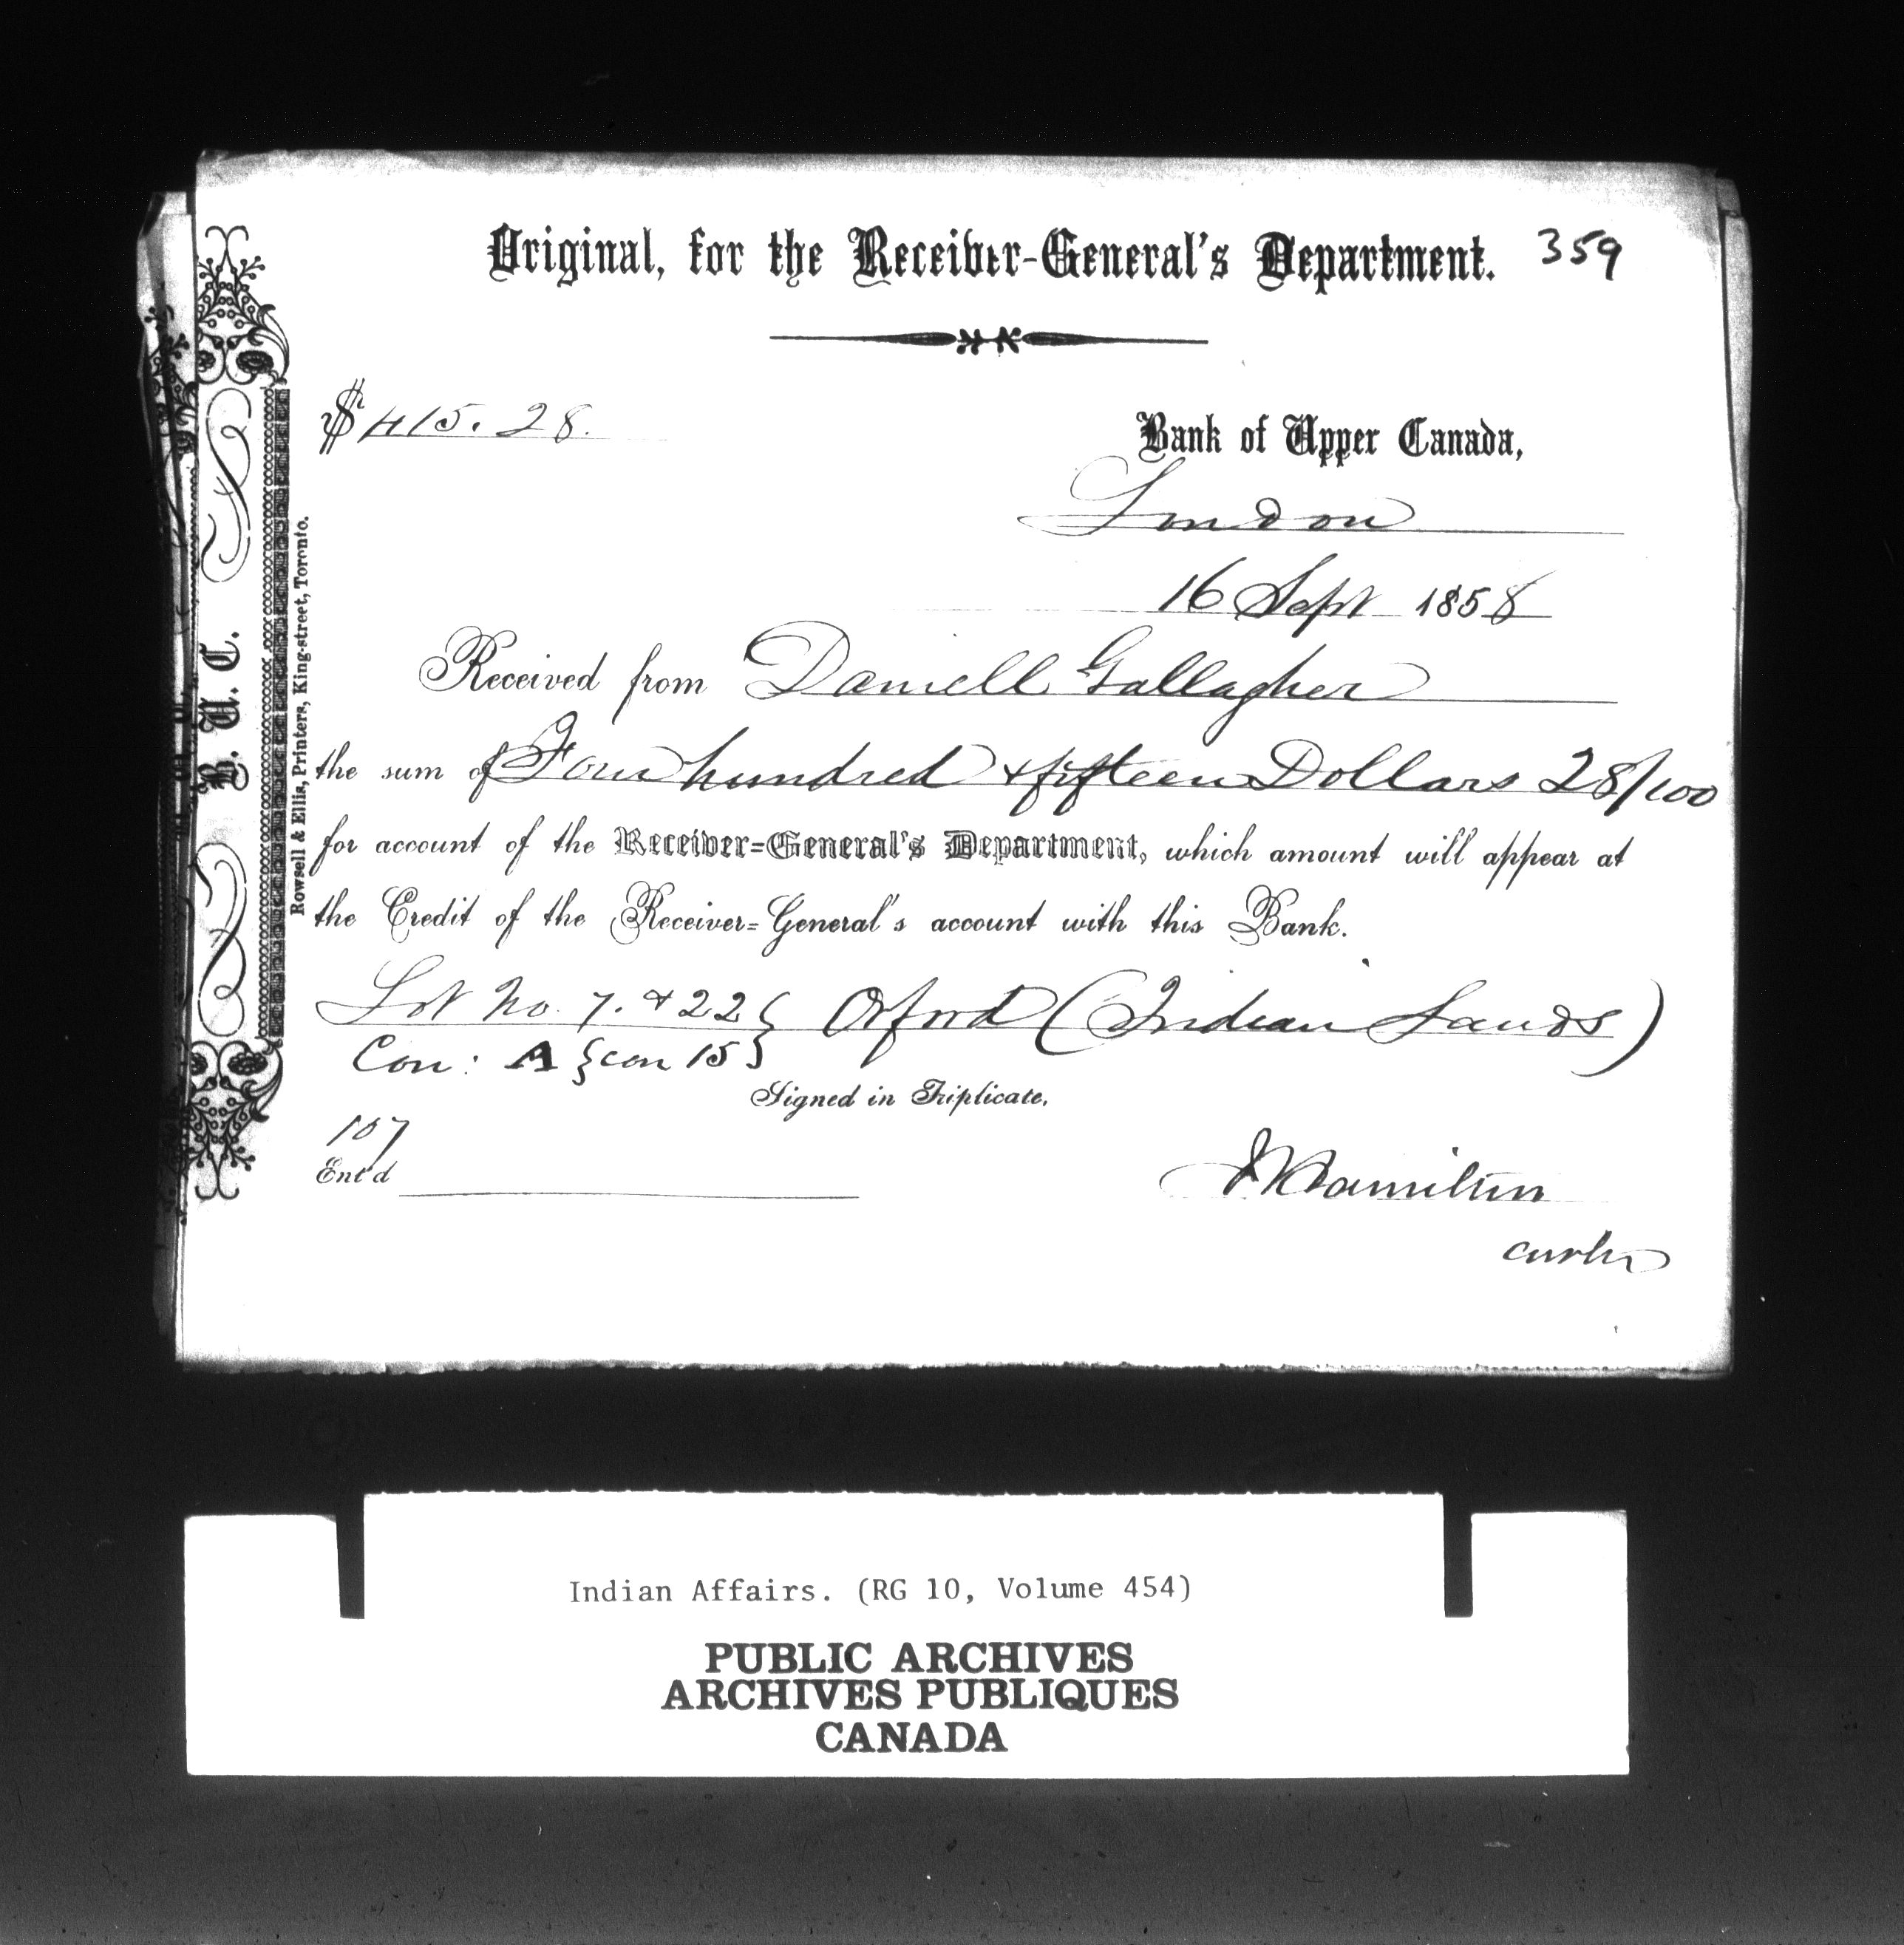 Original, for the Receiver-General's Department. 359
$415.28.
Bank of Upper Canada,
London
16 Sept 1858
Received from Daniell Gallagher
the sum of Four hundred & fifteen Dollars 28/100
for account of the Receiver=General's Department, which amount will appear at
the Credit of the Receiver=General's account with this Bank.
Lot No. 7. & 22 } Orford (Indian Lands)
Con: A {con 15 }
Signed in Triplicate.
107
Ent'd
Hamilton
B. U. C.
Rowsell & Ellis, Printers, King-street, Toronto.
Indian Affairs. (RG 10, Volume 454)
PUBLIC ARCHIVES
ARCHIVES PUBLIQUES
CANADA